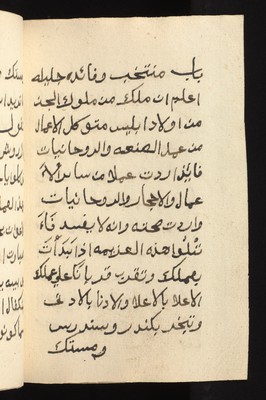 باب منتخب وفائده جليله
اعلم ان ملك من ملوك الجن
من اولاد ابليس متوكل الاعمال
من عمل الصنعه والروحانيات
فاذا اردت عملا من ساير الا
عمال والاحجار والروحانيات
واردت صحته وانه لا يفسد فاء
تتلوا هذه العزيمه اذا بدأت
بعملك وتقرب قربانا على عملك
الاعلا بالاعلا والادنا بالادنى
وتبخر بكندر وسندرس
ومستك